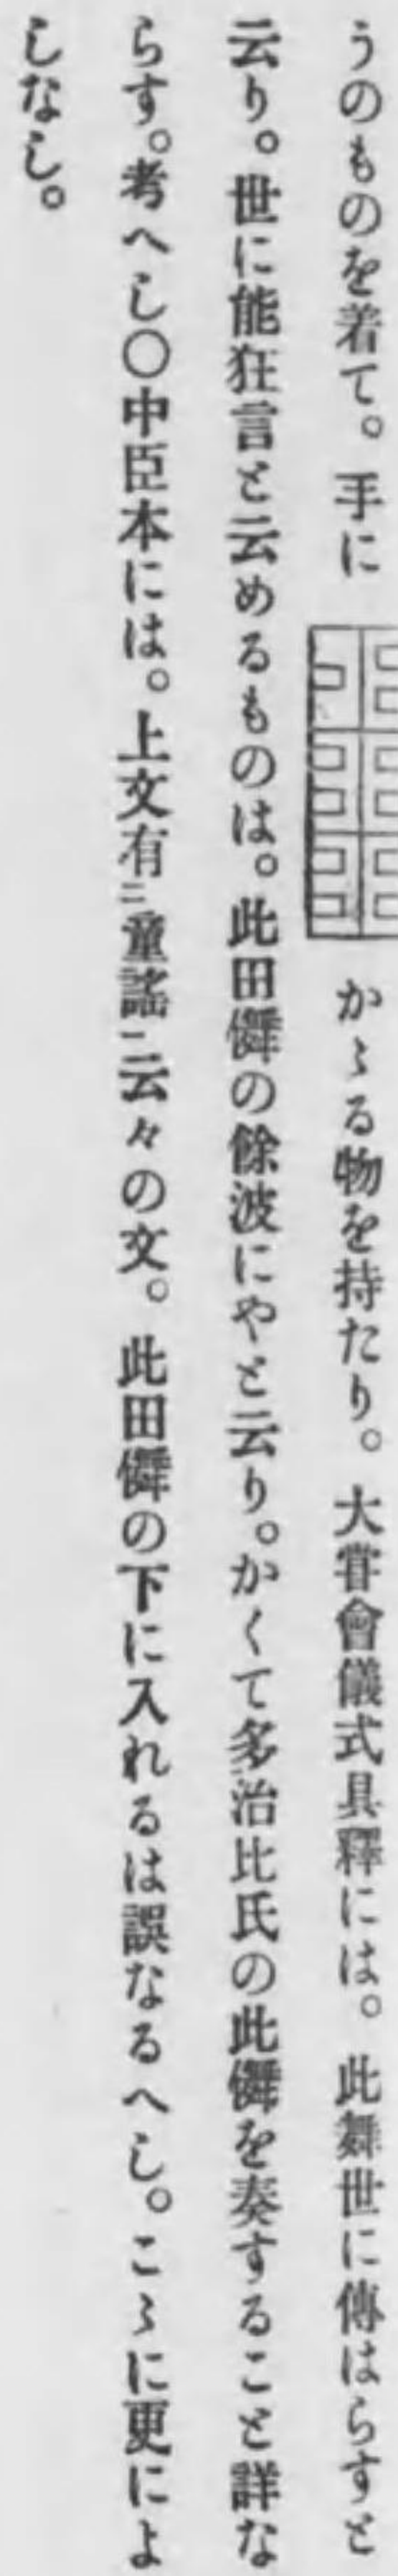 うのものを着て。手に　かゝる物を持たり。大甞會儀式具釋には。此舞世に傳はらすと
云り。世に能狂言と云めるものは。此田儛の餘波にやと云り。かくて多治比氏の此儛を奏すること詳な
らす。考へし〇中臣本には。上文有㆓童謠㆒云々の文。此田儛の下に入れるは誤なるへし。こゝに更によ
しなし。